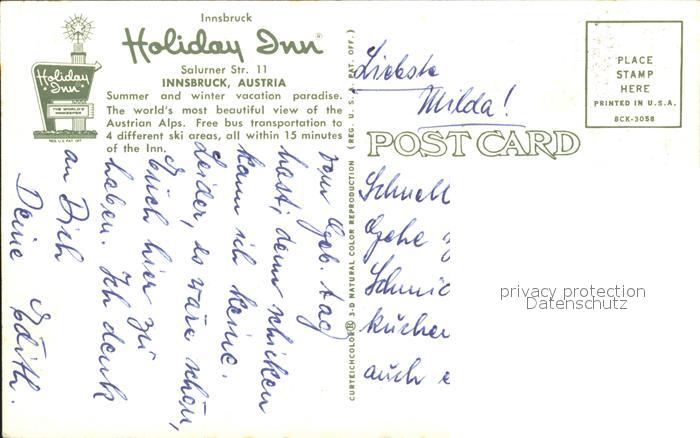 Innsbruck
Holiday Inn®
Salurner Str. 11
INNSBRUCK, AUSTRIA
Summer and winter vacation paradise.
The world's most beautiful view of the
Austrian Alps. Free bus transportation to
4 different ski areas, all within 15 minutes
of the Inn.
Holiday
Inn
THE WORLD'S
INNKEEPER
REG. U.S. PAT. OFF.
CURTEICHCOLOR® 3-D NATURAL COLOR REPRODUCTION (REG. U.S.A. PAT. OFF.)
POST CARD
PLACE
STAMP
HERE
PRINTED IN U.S.A.
8CK-3058
Liebste
Milda!
Schnell
Gehe z
Schmic
kuchen
auch e
vom Geb. tag
hast; denn schicken
kann ich keine.
Leider, es wäre schön,
Euch hier zu
haben. Ich denk
an Dich
Deine Edith.
privacy protection
Datenschutz